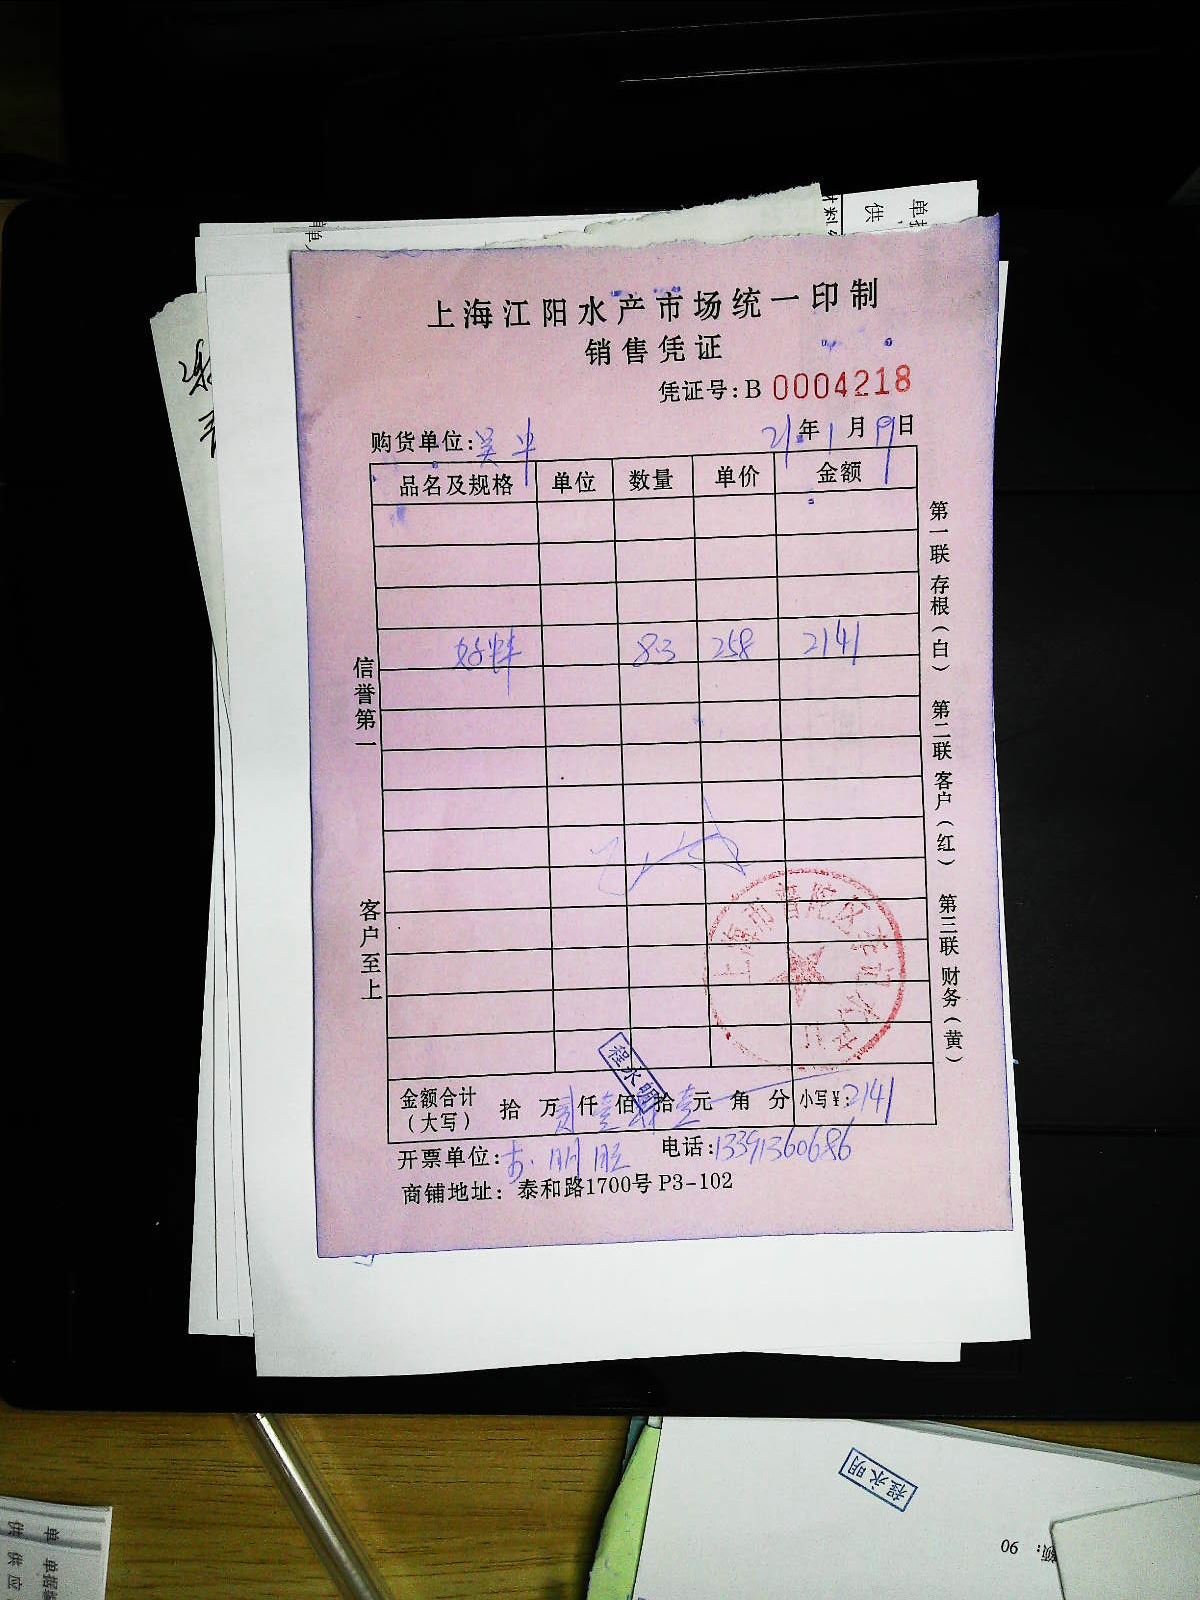 上海江阳水产市场统一印制
销售凭证
凭证号:B 0004218
购货单位: 21年1月19日
品名及规格 单位 数量 单价 金额
8.3 258 2141
信誉第一
客户至上
第一联 存根(白) 第二联 客户(红) 第三联 财务(黄)
上海市普陀区
程永明
金额合计(大写) 拾 万贰仟壹佰肆拾壹元 角 分 小写¥:2141
开票单位: 电话:13391360686
商铺地址: 泰和路1700号 P3-102
程永明
90
单 单据
供 供应